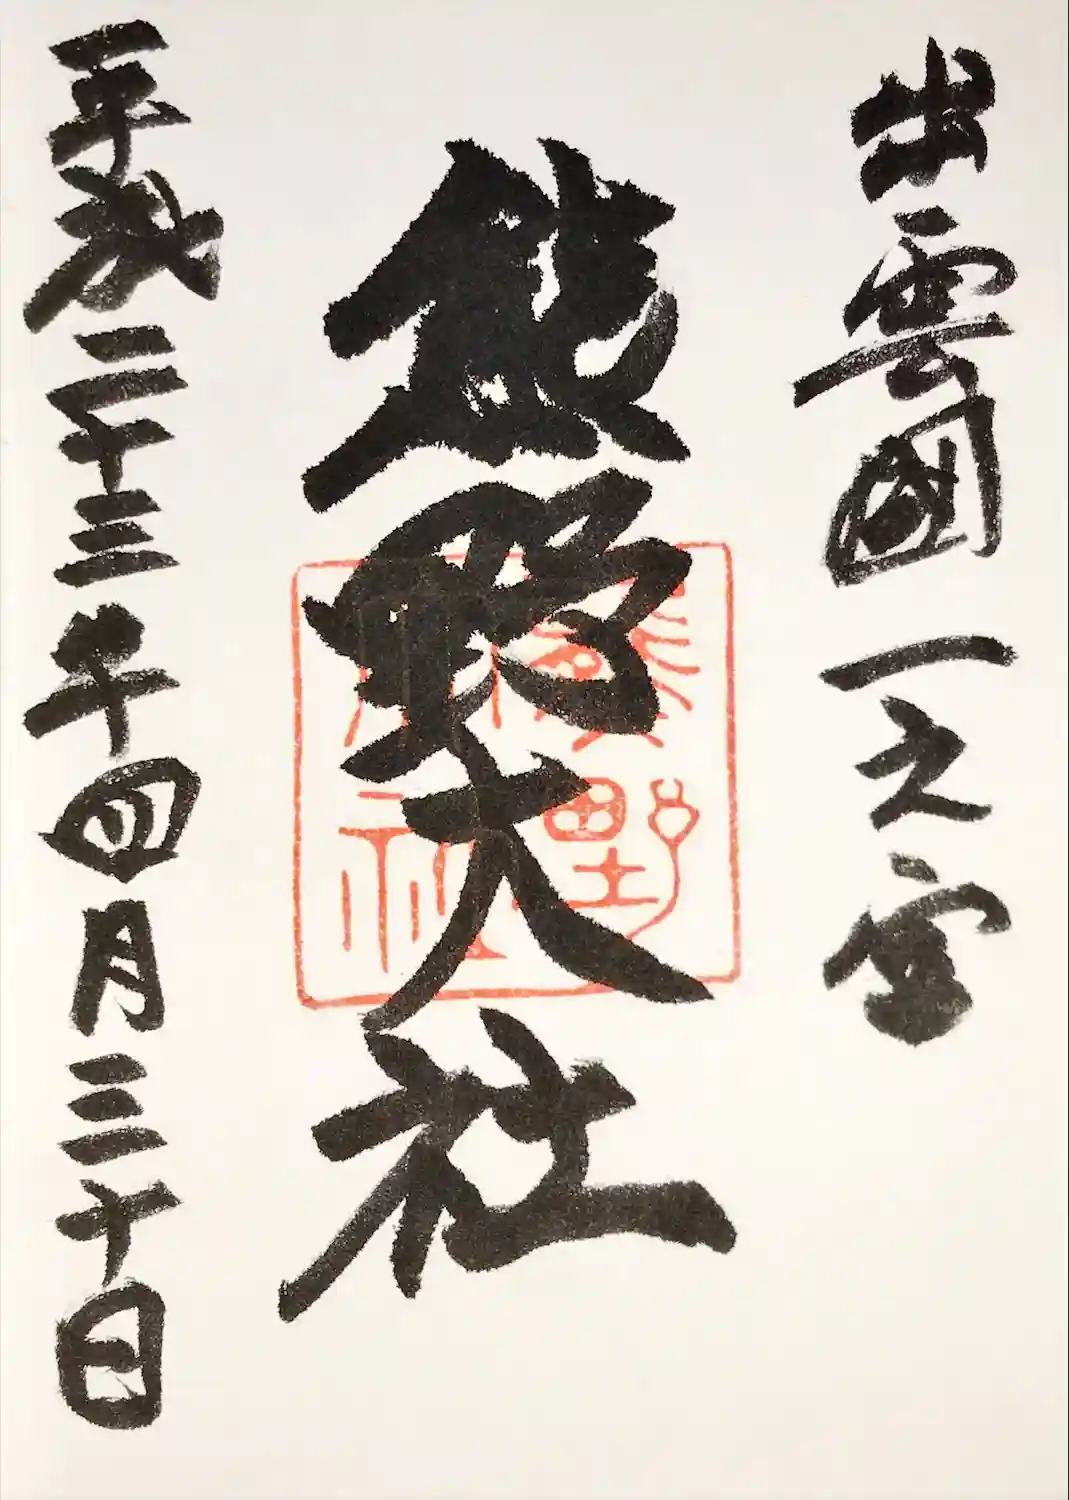 出雲國一之宮
熊野大社
平成二十三年四月三十日
熊野
大社